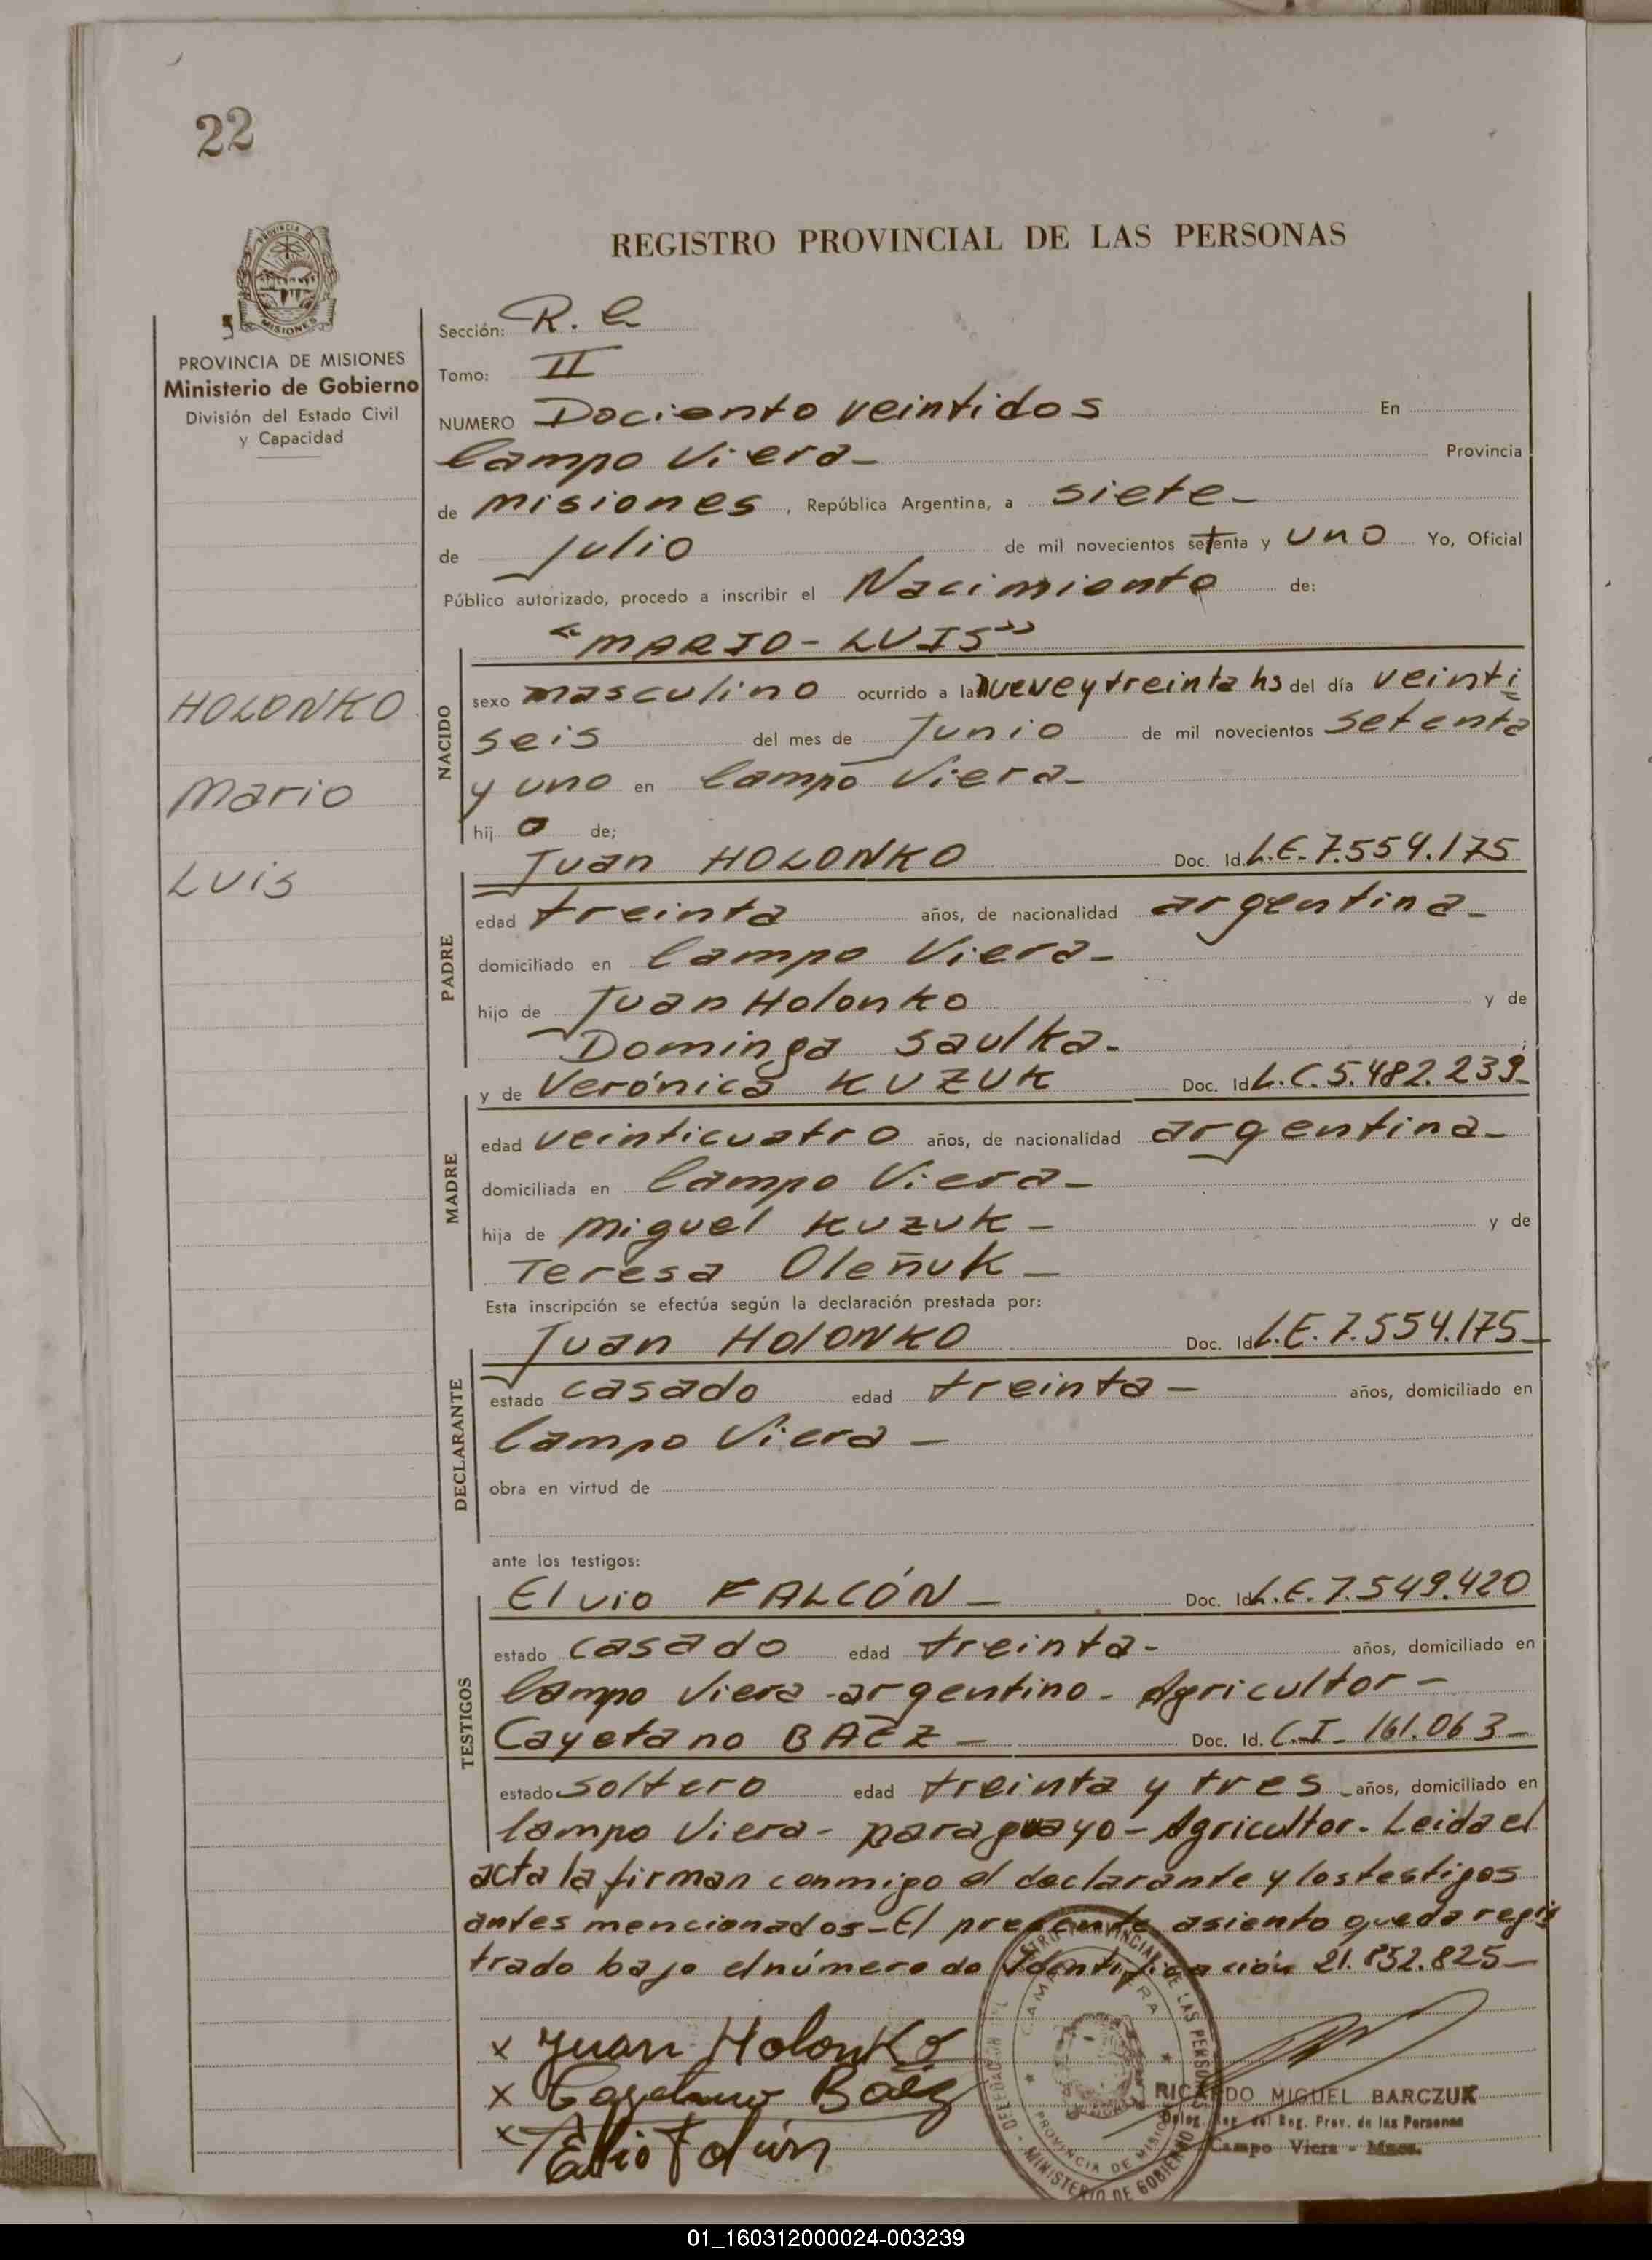 22
PROVINCIA DE
MISIONES
PROVINCIA DE MISIONES
Ministerio de Gobierno
División del Estado Civil
y Capacidad
HOLONKO
Mario
Luis
REGISTRO PROVINCIAL DE LAS PERSONAS
Sección: R. E
Tomo: II
NUMERO Dociento veintidos En
Campo Viera-
Provincia
de misiones, República Argentina, a siete-
de Julio de mil novecientos setenta y uno Yo, Oficial
Público autorizado, procedo a inscribir el Nacimiento de:
"MARIO - LUIS"
NACIDO
sexo masculino ocurrido a la nueve y treinta hs del día veinti
seis del mes de Junio de mil novecientos setenta
y uno en Campo Viera-
hij o de;
Juan HOLONKO Doc. Id. L.E. 7.554.175
PADRE
edad treinta años, de nacionalidad argentina-
domiciliado en Campo Viera-
hijo de Juan Holonko y de
Dominga Saulka-
y de Verónica KUZUK Doc. Id L.C. 5.482.239-
MADRE
edad veinticuatro años, de nacionalidad argentina-
domiciliada en Campo Viera-
hija de Miguel KUZUK - y de
Teresa Oleñuk -
Esta inscripción se efectúa según la declaración prestada por:
Juan HOLONKO Doc. Id L.E. 7.554.175-
DECLARANTE
estado casado edad treinta - años, domiciliado en
Campo Viera -
obra en virtud de
ante los testigos:
Elvio FALCÓN - Doc. Id L.E. 7.549.420
TESTIGOS
estado casado edad treinta- años, domiciliado en
Campo Viera - argentino - Agricultor -
Cayetano BAÉZ - Doc. Id. C.I- 161.063-
estado soltero edad treinta y tres - años, domiciliado en
Campo Viera - paraguayo - Agricultor. Leida el
acta la firman conmigo el declarante y los testigos
antes mencionados - El presente asiento queda regis
trado bajo el número de Identificación 21.832.825-
x Juan Holonko
x Cayetano Baéz
x
PROVINCIAL DE LAS PERSONAS
PROVINCIA DE MISIONES
MINISTERIO DE GOBIERNO
RICARDO MIGUEL BARCZUK
del Reg. Prov. de las Personas
Campo Viera - Mnes.
01_160312000024-003239